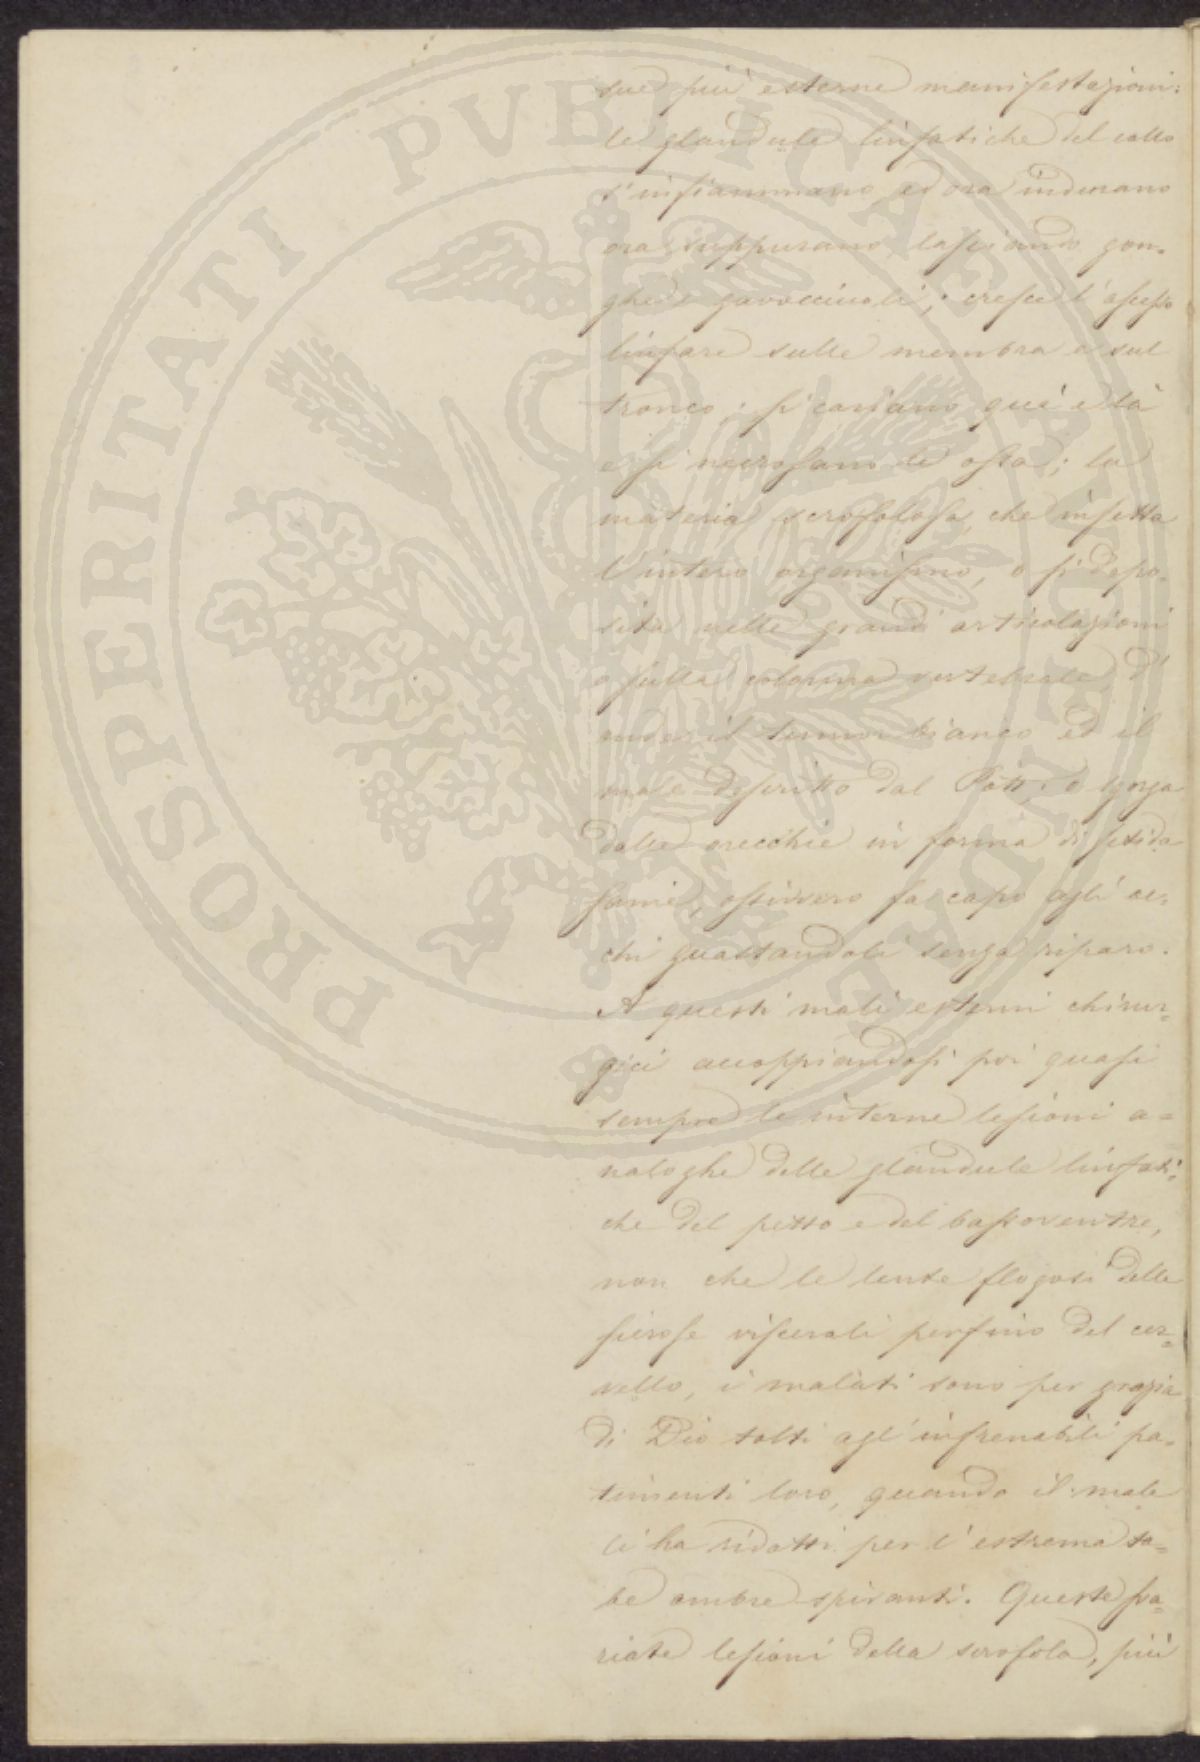 sue più esterne manifestazioni:
le glandule linfatiche del collo
s'infiammano, ed ora indurano
ora suppurano lasciando gon-
ghe e gavoccioli; cresce l'ascesso
linfare sulle membra e sul
tronco; si cariano quì e là
e si necrosano le ossa; la
materia scrofolosa, che infetta
l'intero organismo, o si depo-
sita nelle grandi articolazioni
o sulla colonna vertebrale, d'
onde il tumor bianco ed il
male descritto dal Pott, o sgorga
dalle orecchie in forma di fetida
sanie, ossivvero fa capo agli oc-
chi guastandoli senza riparo.
A questi mali esterni chirur-
gici accoppiandosi poi quasi
sempre le interne lesioni a-
naloghe delle glandule linfati-
che del petto e del bassoventre,
non che le lente flogosi delle
sierose viscerali perfino del cer-
vello, i malati sono per grazia
di Dio tolti agl'infrenabili pa-
timenti loro, quando il male
li ha ridotti per l'estrema ta-
be ombre spiranti. Queste sva-
riate lesioni della scrofola, più
PROSPERITATI PVBLICAE AVGENDAE